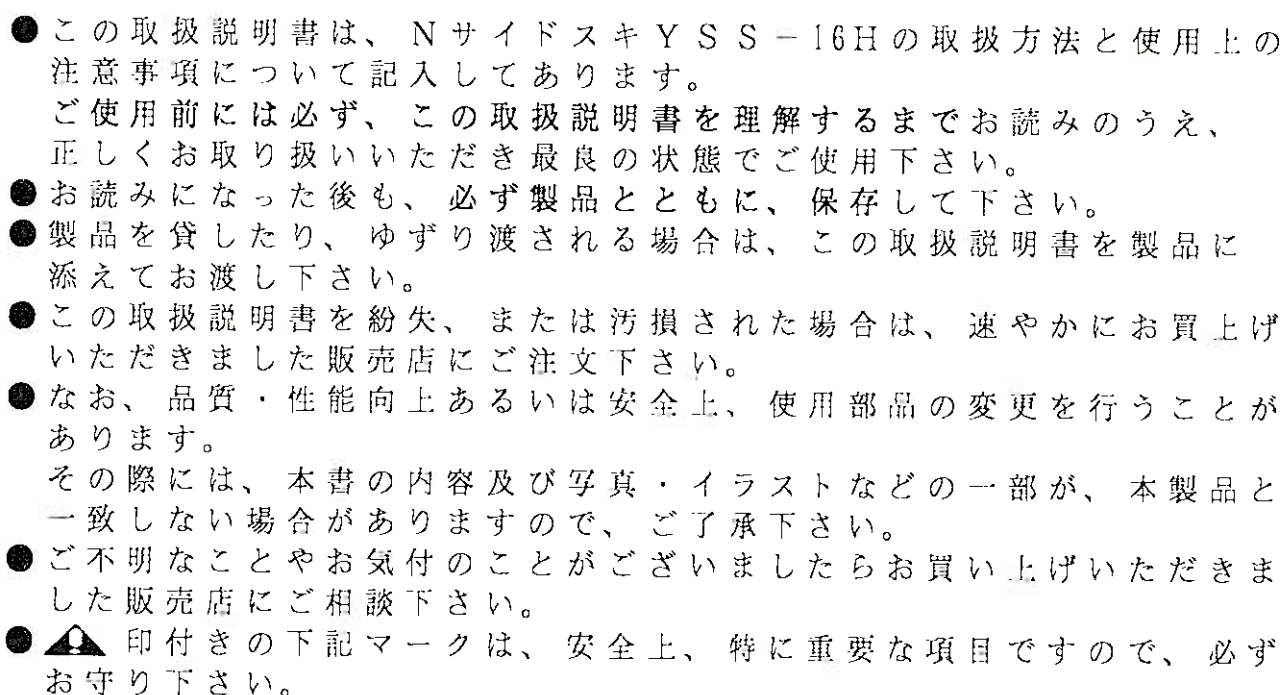 ●この取扱説明書は、NサイドスキYSS－16Hの取扱方法と使用上の
注意事項について記入してあります。
ご使用前には必ず、この取扱説明書を理解するまでお読みのうえ、
正しくお取り扱いいただき最良の状態でご使用下さい。
●お読みになった後も、必ず製品とともに、保存して下さい。
●製品を貸したり、ゆずり渡される場合は、この取扱説明書を製品に
添えてお渡し下さい。
●この取扱説明書を紛失、または汚損された場合は、速やかにお買上げ
いただきました販売店にご注文下さい。
●なお、品質・性能向上あるいは安全上、使用部品の変更を行うことが
あります。
その際には、本書の内容及び写真・イラストなどの一部が、本製品と
一致しない場合がありますので、ご了承下さい。
●ご不明なことやお気付のことがございましたらお買い上げいただきま
した販売店にご相談下さい。
●⚠印付きの下記マークは、安全上、特に重要な項目ですので、必ず
お守り下さい。